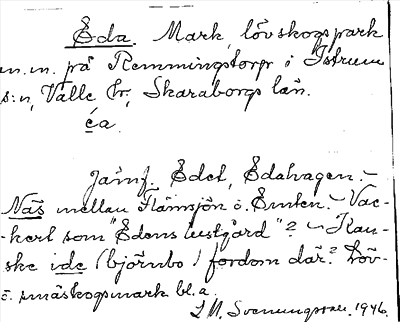 Eda. Mark, lövskogspark
m.m. på Remmingstorp i Istrum
s:n, Valle hr, Skaraborgs län.
éa.
Jämf. Edet, Edahagen. –
Näs mellan Flämsjön o. Emten. – Vac-
kert som "Edens lustgård"? – Kan-
ske ide (björnbo) fordom där? Löv-
o. småskogsmark bl.a.
Svenungsson. 1946.